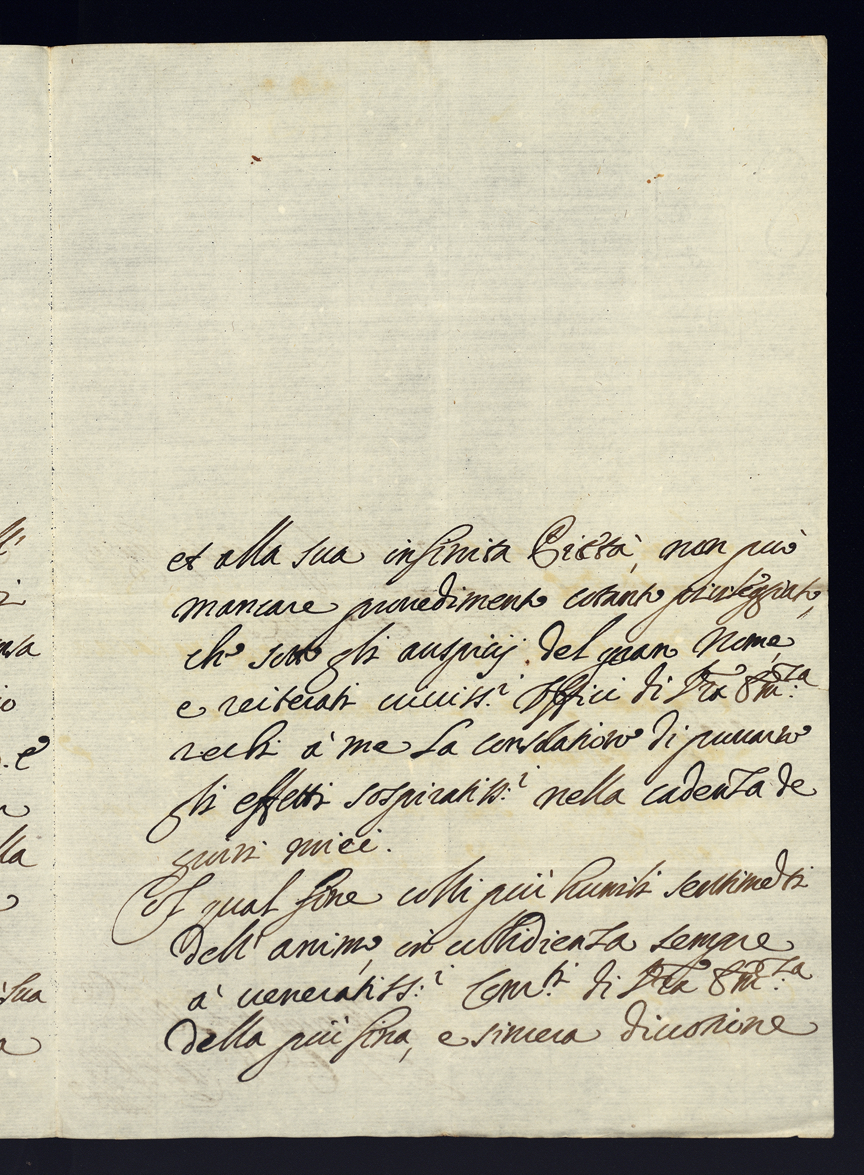 et alla sua infinita Pietà, non può
mancare provedimento cotanto privilegiato,
che sotto gli auspicij del gran Nome,
e reiterati viviss.i Offici di Vra Em.za
rechi à me la consolatione di provarne
gli effetti sospiratiss.i nella cadenza de
giorni miei.
Al qual fine colli più humili sentimenti
dell'animo, in ubbidienza sempre
à veneratiss.i Com.ti di Vra Em.za
della più fina, e sincera divotione